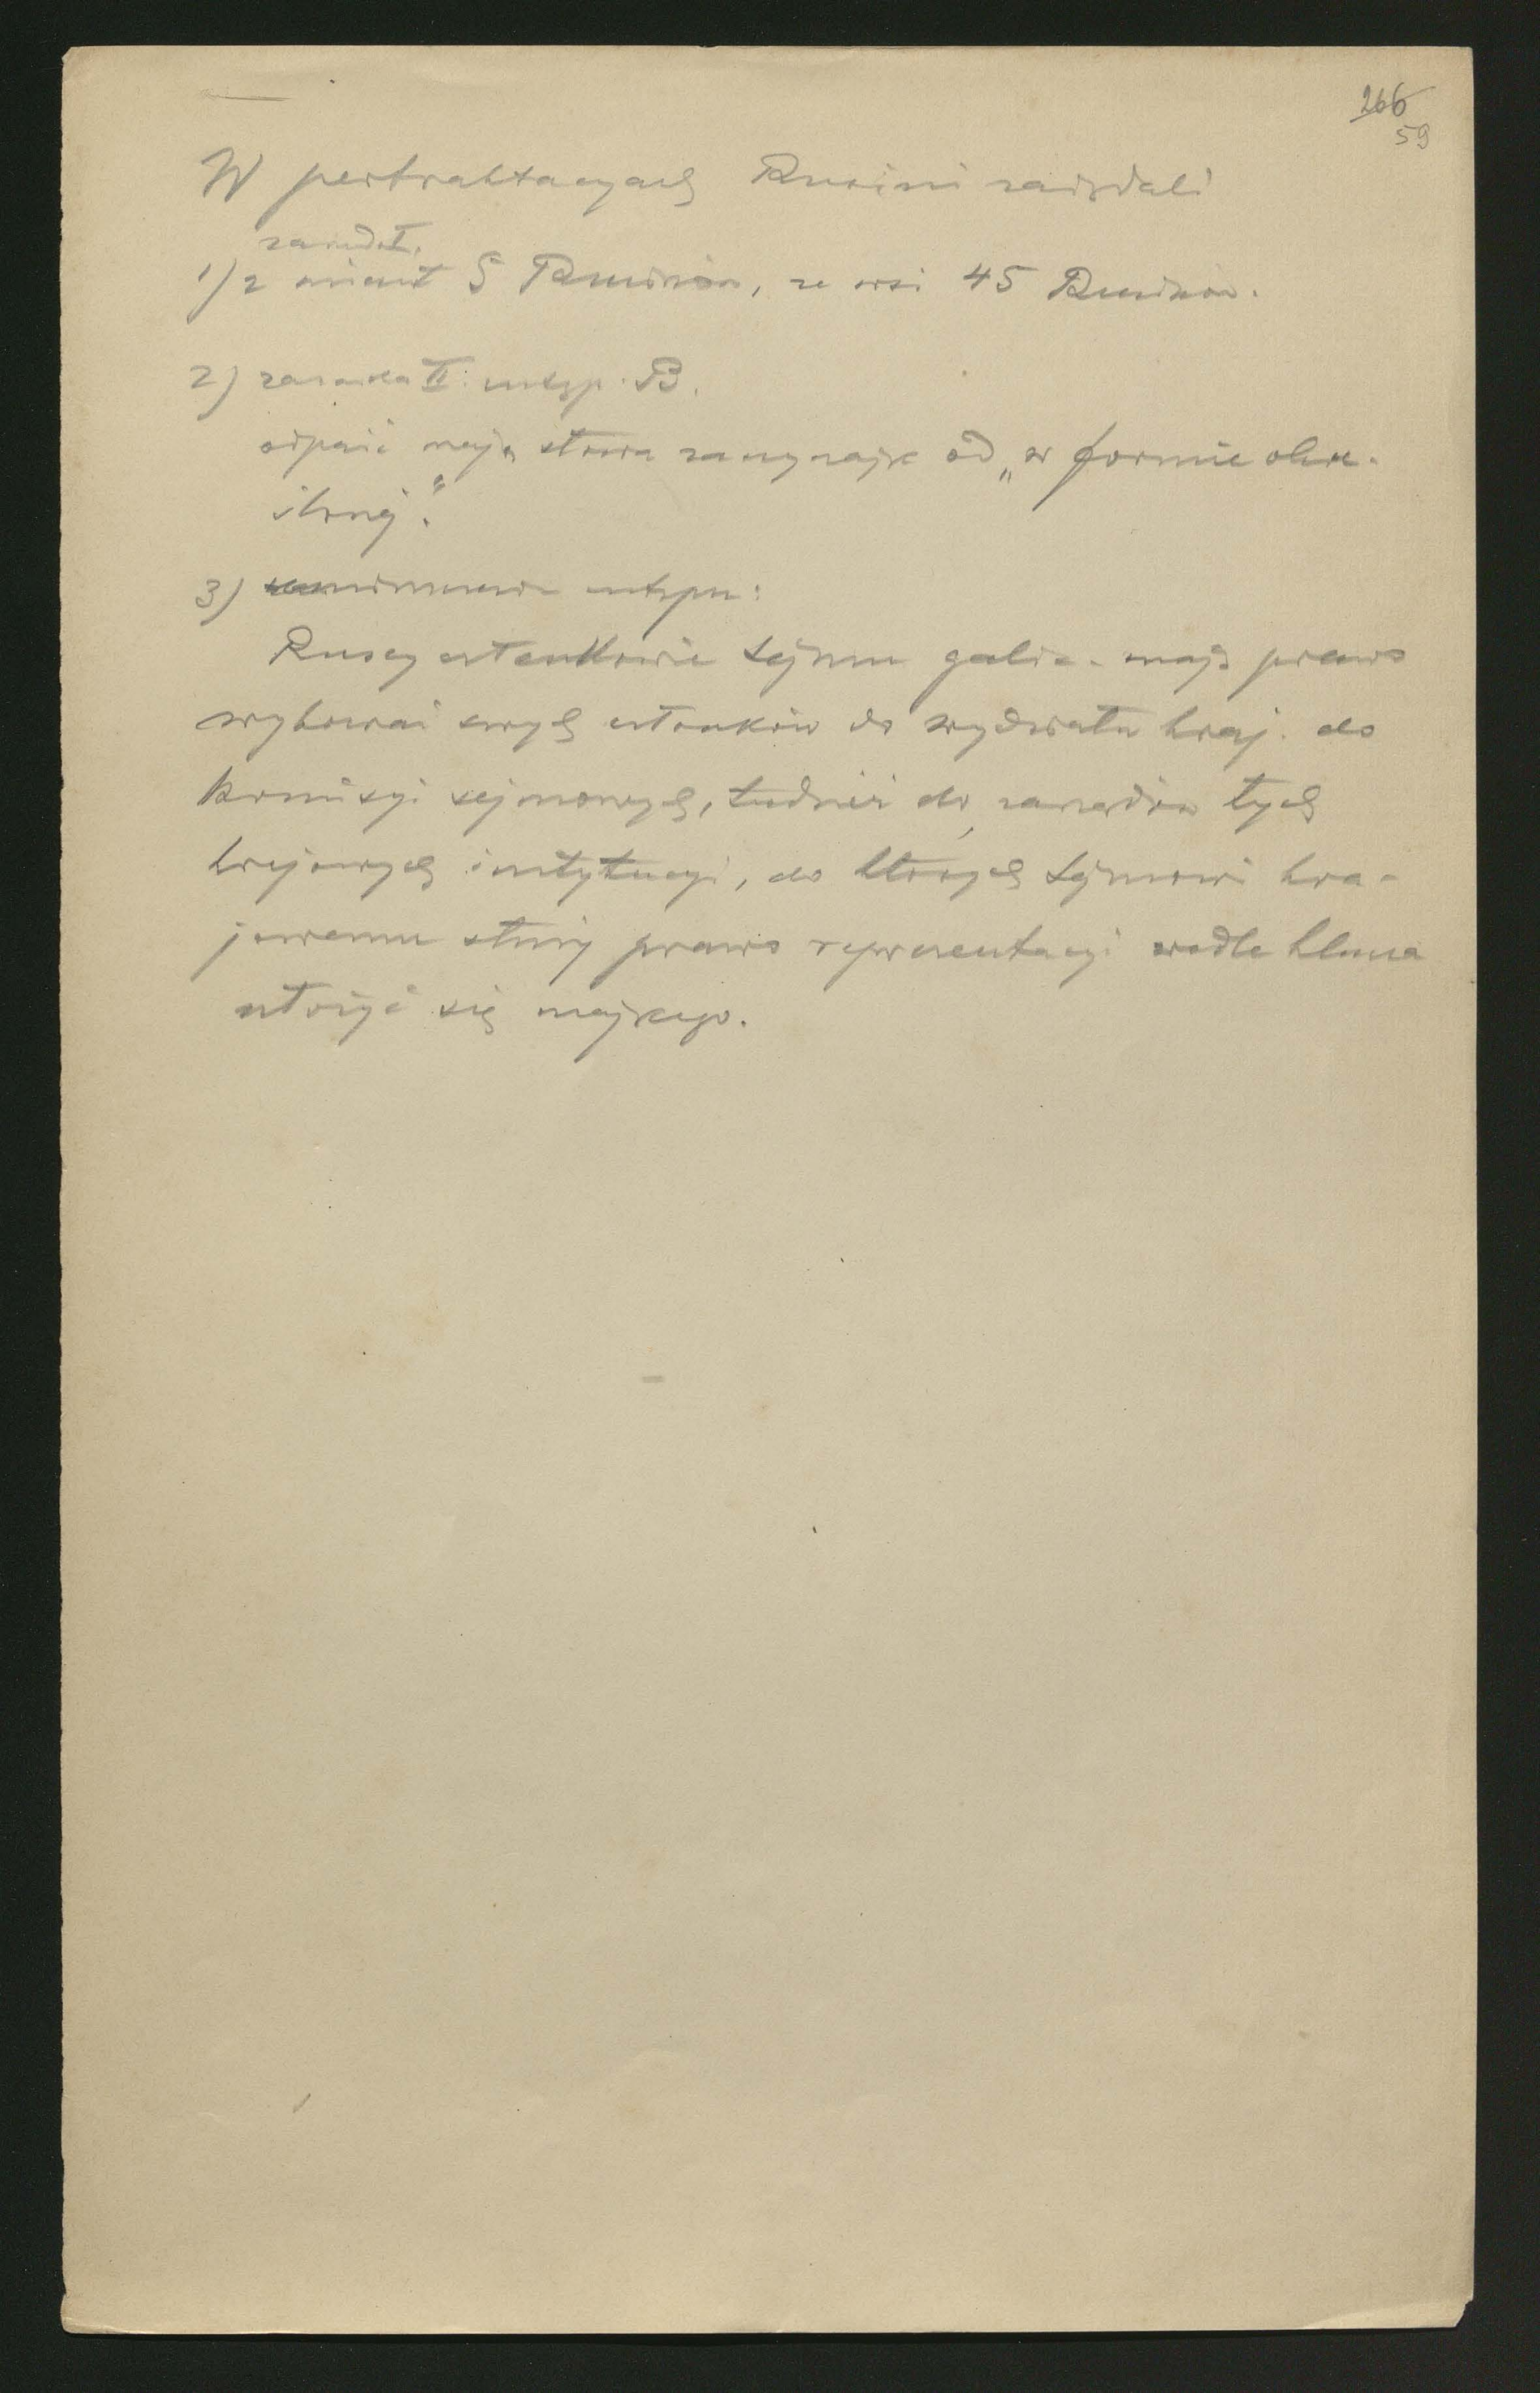 266
59
W pertraktacyach Rusini zażądali
zasada I.
1) z miast 5 Rusinów, ze wsi 45 Rusinów.
2) zasada II. ustęp. B.
odpaść mają słowa zacząwszy od „w formie okre-
ślonej."
3) ustępu:
Ruscy członkowie Sejmu galic. mają prawo
wybierać swych członków do wydziału kraj. do
komisyi sejmowych, tudzież do zarządów tych
krajowych instytucyi, do których Sejmowi kra-
jowemu służy prawo reprezentacyi wedle klucza
ułożyć się mającego.